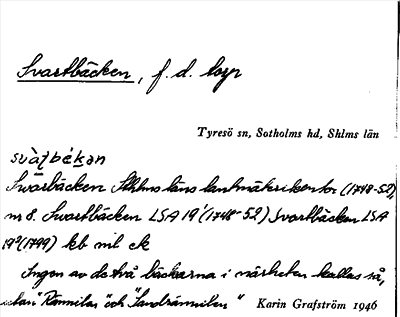 Svartbäcken, f. d. torp
Tyresö sn, Sotholms hd, Shlms län
Svartbäcken Sthlms läns lantmäterikontor (1748-52),
m 8. Svartbäcken LSA 19¹(1748-52) Svartbäcken LSA
19²(1799) kb ml ek
Ingen av de två bäckarna i närheten kallas så,
utan "Rännilen" och "Sandrännilen" Karin Grafström 1946